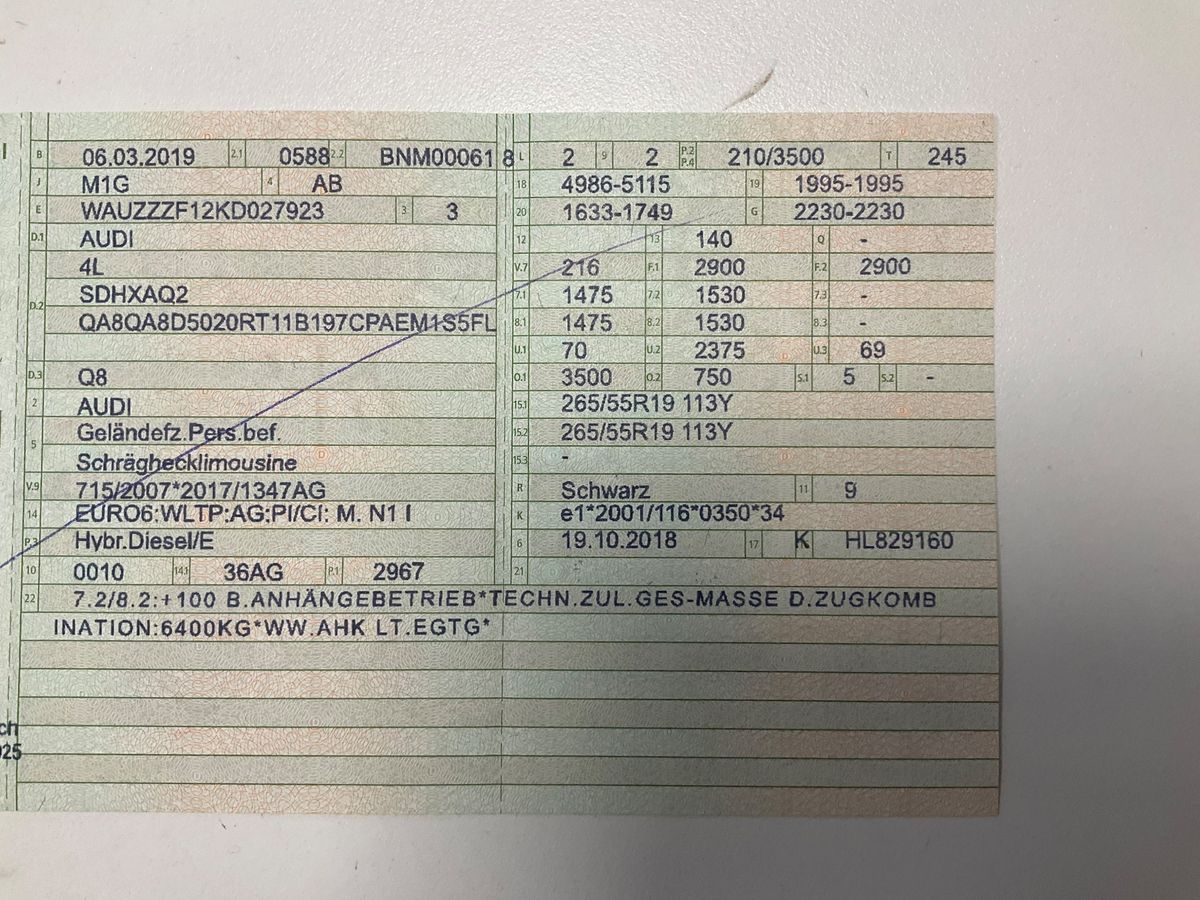 B 06.03.2019 2.1 0588 2.2 BNM00061 8 L 2 9 2 P.2 P.4 210/3500 T 245
J M1G 4 AB 18 4986-5115 19 1995-1995
E WAUZZZF12KD027923 3 3 20 1633-1749 G 2230-2230
D.1 AUDI 12 13 140 Q -
4L V.7 216 F.1 2900 F.2 2900
D.2 SDHXAQ2 7.1 1475 7.2 1530 7.3 -
QA8QA8D5020RT11B197CPAEM1S5FL 8.1 1475 8.2 1530 8.3 -
U.1 70 U.2 2375 U.3 69
D.3 Q8 O.1 3500 O.2 750 S.1 5 S.2 -
2 AUDI 15.1 265/55R19 113Y
5 Geländefz.Pers.bef. 15.2 265/55R19 113Y
Schräghecklimousine 15.3 -
V.9 715/2007*2017/1347AG R Schwarz 11 9
14 EURO6:WLTP:AG:PI/CI: M. N1 I K e1*2001/116*0350*34
P.3 Hybr.Diesel/E 6 19.10.2018 17 K HL829160
10 0010 14.1 36AG P.1 2967 21
22 7.2/8.2:+100 B.ANHÄNGEBETRIEB*TECHN.ZUL.GES-MASSE D.ZUGKOMB
INATION:6400KG*WW.AHK LT.EGTG*
ch
025